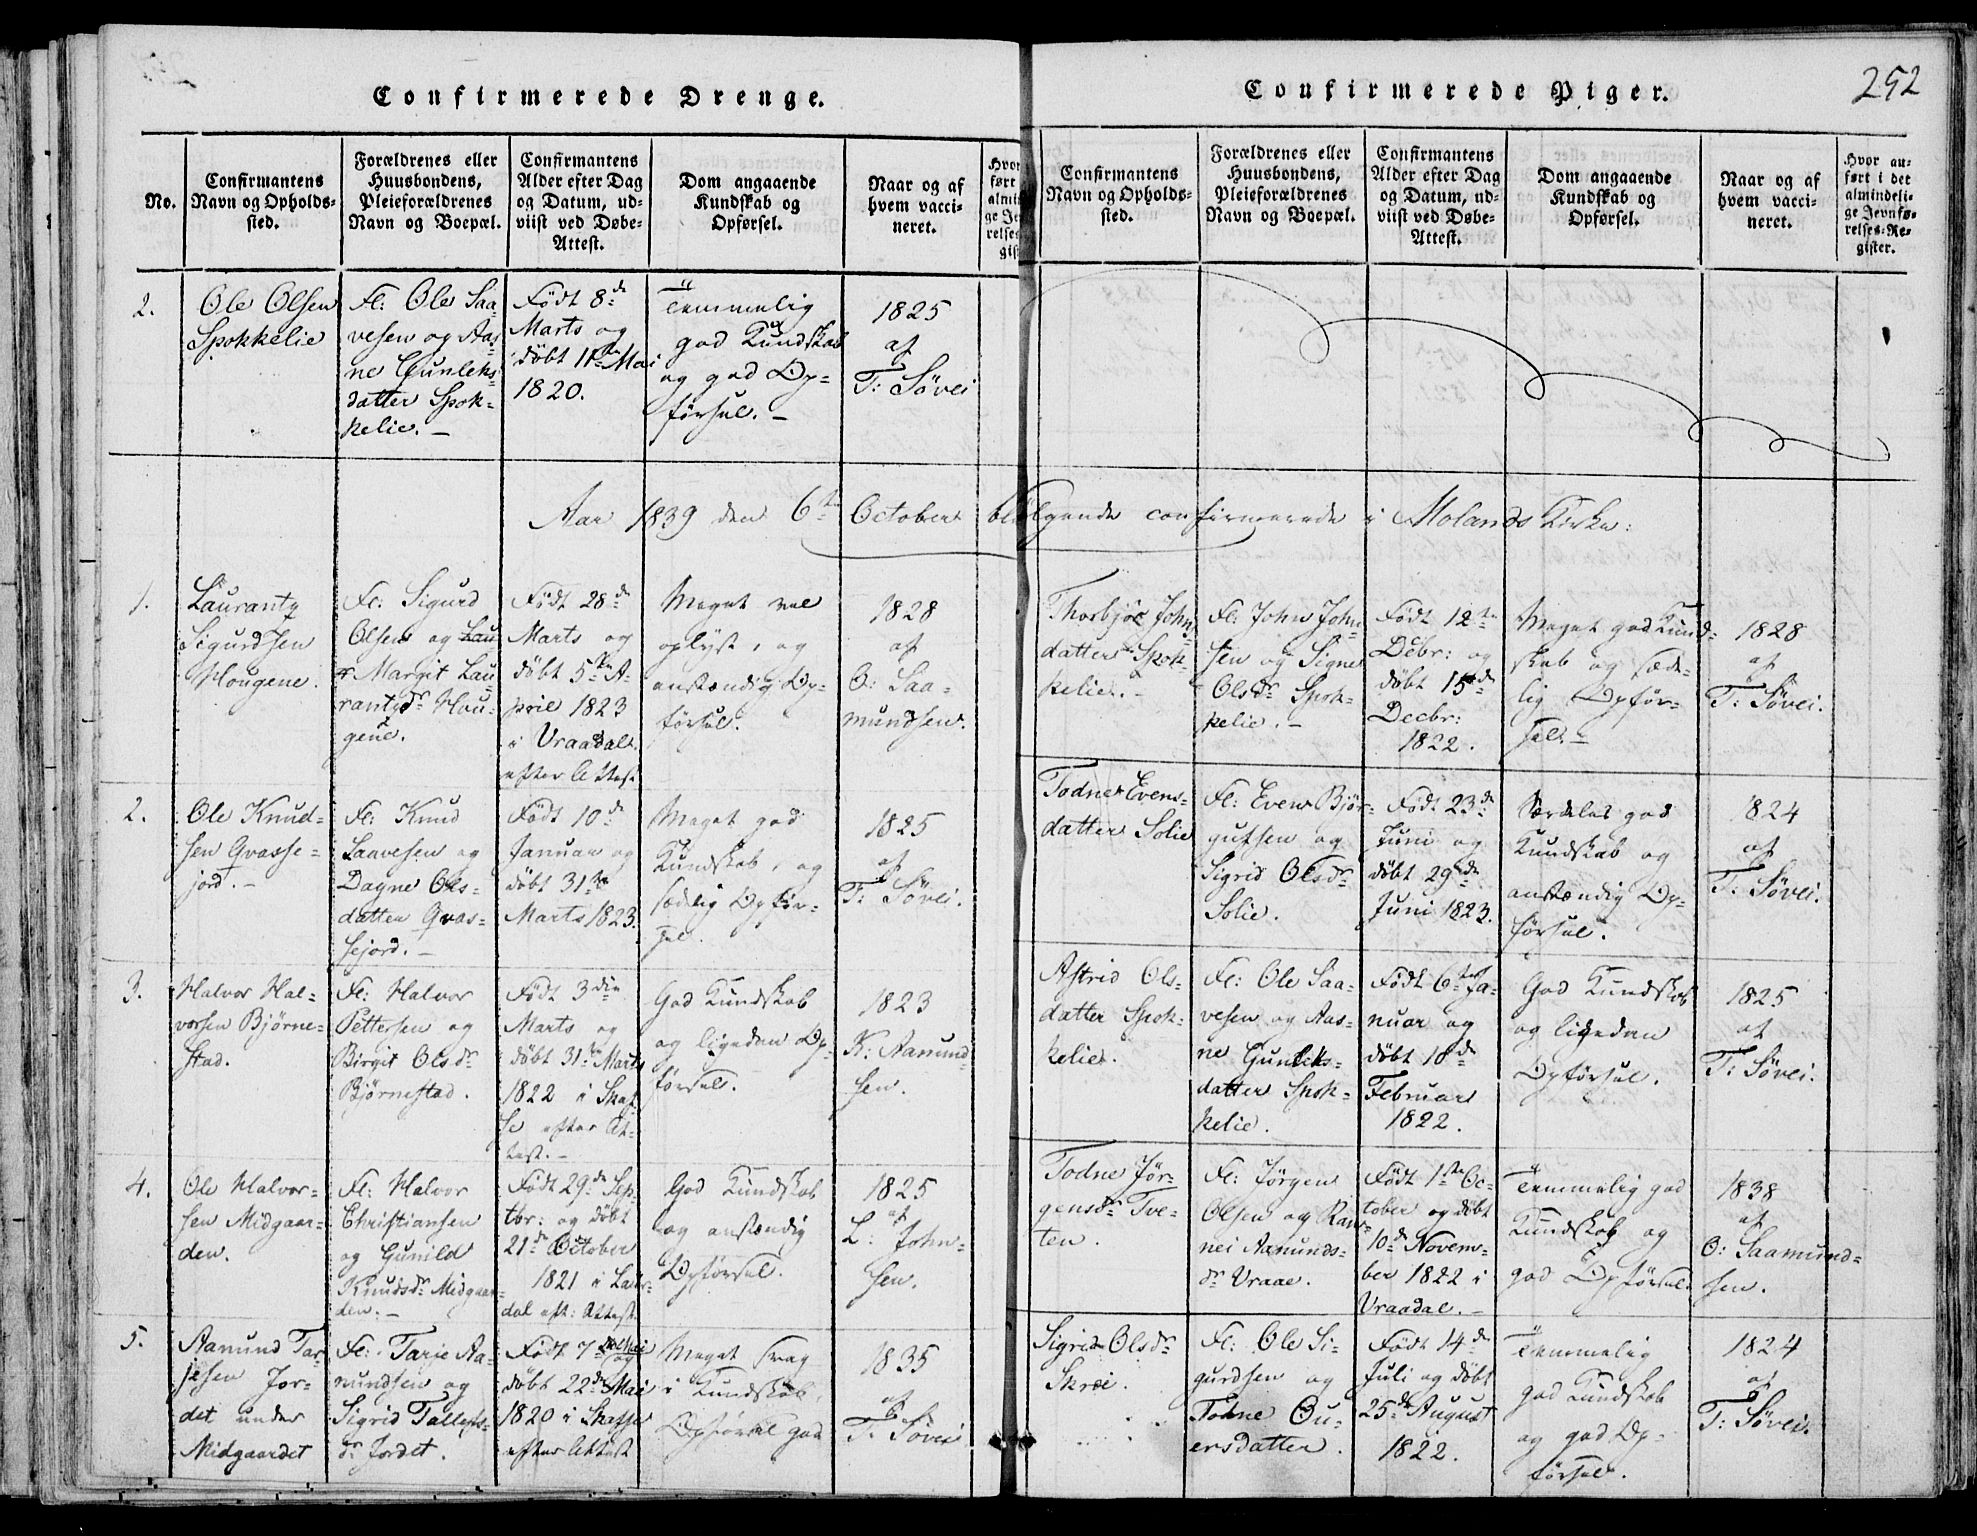 Confirmerede Drenge.
No.
Confirmantens
Navn og Opholds-
sted.
Forældrenes eller
Huusbondens,
Pleieforældrenes
Navn og Boepæl.
Confirmantens
Alder efter Dag
og Datum, ud-
viist ved Døbe-
Attest.
Dom angaaende
Kundskab og
Opførsel.
Naar og af
hvem vacci-
neret.
2.
Ole Olsen
Spokkelie
Fl: Ole Saa-
vesen og Aas-
ne Gunleks-
datter Spok-
kelie. —
Født 8de
Marts og
døbt 11te Mai
1820.
Temmelig
god Kundskab
og god Op-
førsel. —
1825
af
T: Sövei
Aar 1839 den 6te October
1.
Laurantz
Sigurdsen
Hougene.
Fl: Sigurd
Olsen og Lau
r Margit Lau-
rantzdr Hou-
gene.
Født 28de
Marts og
døbt 5te A-
pril 1823
i Vraadal
efter Attest
Meget vel
oplyst, og
anstændig Op-
førsel.
1828
af
O: Saa-
mundsen.
2.
Ole Knud-
sen Qvasse-
jord. —
Fl: Knud
Saavesen og
Dagne Ols-
datter Qvas-
sejord. —
Født 10de
Januar og
døbt 31te
Marts 1823.
Meget god
Kundskab, og
sædelig Opfør-
sel.
1825
af
T: Sövei.
3.
Halvor Hal-
vorsen Bjørne-
stad.
Fl: Halvor
Pettersen og
Birgit Olsdr
Bjørnestad.
Født 3die
Marts og
døbt 31te Marts
1822 i Skaf-
se efter At-
test. —
God Kundskab
og ligedan Op-
førsel.
1823
K: Aamund-
sen.
4.
Ole Halvor-
sen Midgaar-
den.
Fl: Halvor
Christiansen
og Gunild
Knudsdr Midgaar-
den. —
Født 29de Sep-
tbr: og døbt
21de October
1821 i Laur-
dal eft: Attest.
God Kundskab
og anstændig
Opførsel.
1825
af
L: John-
sen.
5.
Aamund Tar-
jesen Jor-
det under
Midgaardet
Fl: Tarje Aa-
mundsen og
Sigrid Tallefs-
dr Jordet.
Født 7de Mai og
døbt 22de Mai
1820 i Skafse
efter Attest
Meget svag
i Kundskab,
Opførsel god
1835
af
T: Sövei
Confirmerede Piger.
252
Confirmantens
Navn og Opholds-
sted.
Forældrenes eller
Huusbondens,
Pleieforældrenes
Navn og Boepæl.
Confirmantens
Alder efter Dag
og Datum, ud-
viist ved Døbe-
Attest.
Dom angaaende
Kundskab og
Opførsel.
Naar og af
hvem vacci-
neret.
Hvor an-
ført i det
almindeli-
ge Jevnfø-
relses-Re-
gister.
følgende confirmerede i Molands Kirke:
Thorbjør Johns-
datter Spok-
kelie. —
Fl: John John-
sen og Signe
Olsdr Spok-
kelie. —
Født 12te
Decbr: og
døbt 15de
Decbr:
1822.
Meget god Kund-
skab og sæde-
lig Opfør-
sel. —
1828
af
T: Sövei.
Todne Evens-
datter Solie
Fl: Even Bjør-
gufsen og
Sigrid Olsdr
Solie.
Født 23de
Juni og
døbt 29de
Juni 1823.
Særdeles god
Kundskab og
anstændig Op-
førsel.
1824
af
T: Sövei.
Astrid Ols-
datter Spok-
kelie.
Fl: Ole Saa-
vesen og Aas-
ne Gunleks-
datter Spok-
kelie.
Født 6te Ja-
nuar og
døbt 10de
Februar
1822.
God Kundskab
og ligedan
Opførsel.
1825
af
T: Sövei.
Todne Jør-
gensdr Tve-
ten.
Fl: Jørgen
Olsen og Ran-
nei Aamunds-
dr Vraae.
Født 1te Oc-
tober og døbt
10de Novem-
ber 1822 i
Vraadal. —
Temmelig god
Kundskab og
god Opførsel.
1838
af
O: Saamund-
sen.
Sigrid Olsdr
Skrei.
Fl: Ole Si-
gurdsen og
Todne Ou-
ersdatter.
Født 14de
Juli og døbt
25de August
1822.
Temmelig
god Kundskab
og god Op-
førsel.
1824
af
T: Sövei.